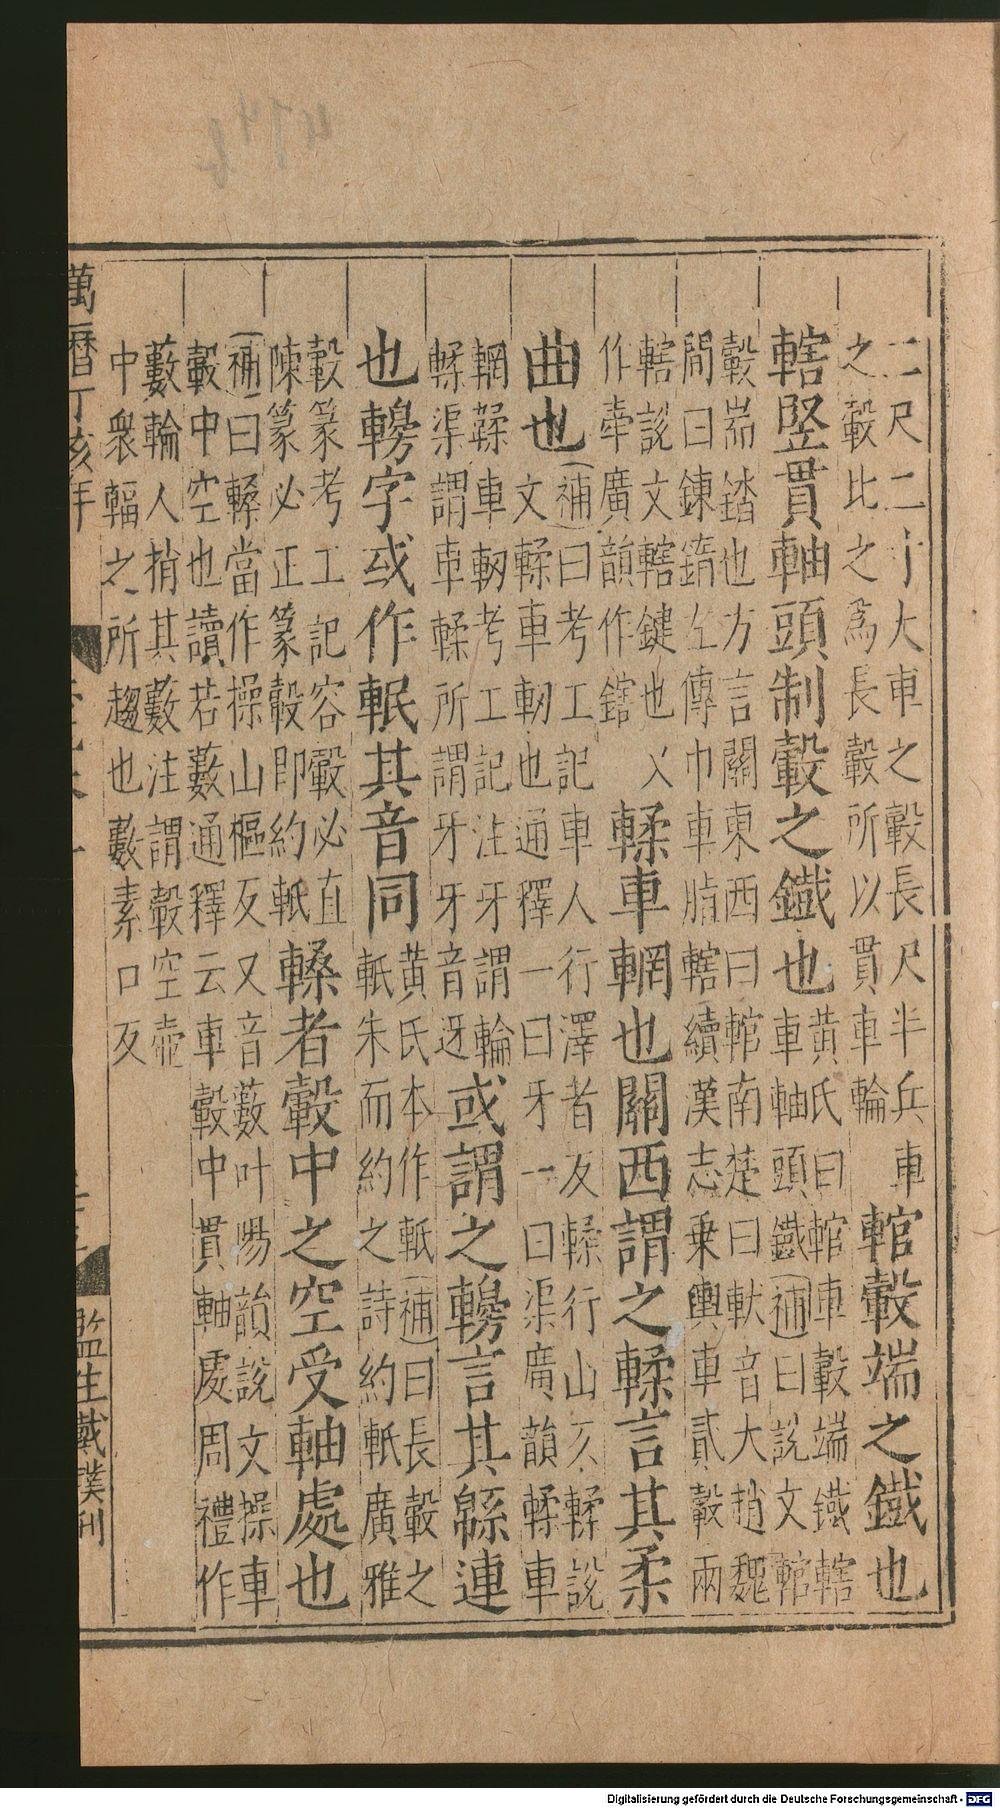 二尺二寸大車之轂長尺半兵車
之轂比之爲長轂所以貫車輪
輨轂端之鐵也
黄氏曰輨車轂端鐵轄
轄竪貫軸頭制轂之鐵也
車軸頭鐵(補)曰說文輨
轂耑錔也方言關東西曰輨南楚曰軑音大趙魏
間曰鍊鐫左傳巾車脂轄續漢志乗輿車貳轂兩
轄說文轄鍵也乂
作舝廣韻作鎋
輮車輞也關西謂之輮言其柔
曲也
(補)曰考工記車人行澤者反輮行山仄輮說
文輮車軔也通釋一曰牙一曰渠廣韻輮車
輞鞣車軔考工記注牙謂輪
輮渠謂車輮所謂牙牙音迓
或謂之轃言其緜連
也轃字或作軧其音同
黄氏本作軝(補)曰長轂之
軝朱而約之詩約軝廣雅
轂篆考工記容轂必直
陳篆必正篆轂即約軝
轑者轂中之空受軸處也
(補)曰轑當作操山樞反又音藪叶暘韻說文操車
轂中空也讀若藪通釋云車轂中貫軸處周禮作
藪輪人捎其藪注謂轂空壺
中衆輻之所趨也藪素口反
萬曆丁亥年
監生戴璞刊
Digitalisierung gefördert durch die Deutsche Forschungsgemeinschaft - DFG